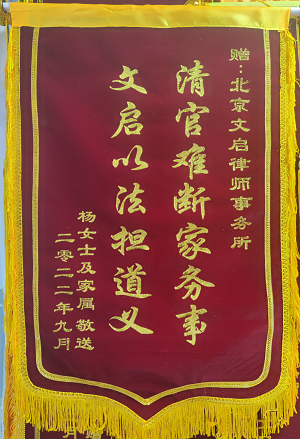 赠：北京文启律师事务所
清官难断家务事
文启以法担道义
杨女士及家属敬送
二零二二年九月